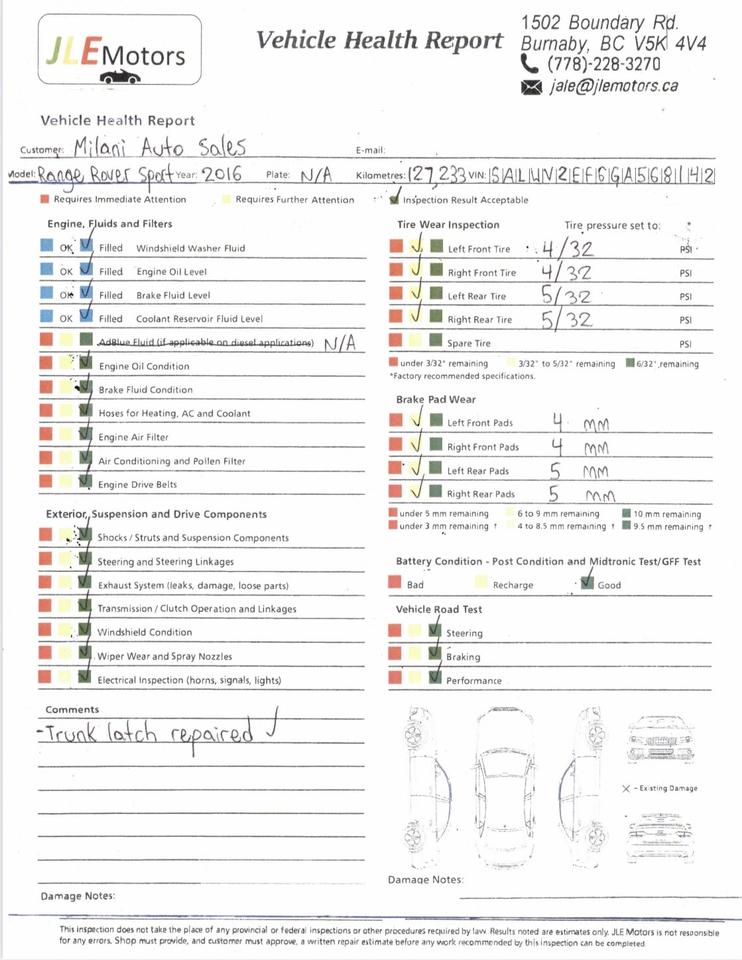 JLE Motors
Vehicle Health Report
1502 Boundary Rd.
Burnaby, BC V5K 4V4
(778)-228-3270
jale@jlemotors.ca
Vehicle Health Report
Customer: Milani Auto Sales E-mail:
Model: Range Rover Sport Year: 2016 Plate: N/A Kilometres: 127,233 VIN: SALWN2EF6GA568142
Requires Immediate Attention Requires Further Attention Inspection Result Acceptable
Engine, Fluids and Filters
OK Filled Windshield Washer Fluid
OK Filled Engine Oil Level
OK Filled Brake Fluid Level
OK Filled Coolant Reservoir Fluid Level
AdBlue Fluid (if applicable on diesel applications) N/A
Engine Oil Condition
Brake Fluid Condition
Hoses for Heating, AC and Coolant
Engine Air Filter
Air Conditioning and Pollen Filter
Engine Drive Belts
Exterior, Suspension and Drive Components
Shocks / Struts and Suspension Components
Steering and Steering Linkages
Exhaust System (leaks, damage, loose parts)
Transmission / Clutch Operation and Linkages
Windshield Condition
Wiper Wear and Spray Nozzles
Electrical Inspection (horns, signals, lights)
Comments
-Trunk latch repaired
Damage Notes:
Tire Wear Inspection Tire pressure set to: *
Left Front Tire 4/32 PSI
Right Front Tire 4/32 PSI
Left Rear Tire 5/32 PSI
Right Rear Tire 5/32 PSI
Spare Tire PSI
under 3/32" remaining 3/32" to 5/32" remaining 6/32" remaining
*Factory recommended specifications.
Brake Pad Wear
Left Front Pads 4 mm
Right Front Pads 4 mm
Left Rear Pads 5 mm
Right Rear Pads 5 mm
under 5 mm remaining 6 to 9 mm remaining 10 mm remaining
under 3 mm remaining † 4 to 8.5 mm remaining † 9.5 mm remaining †
Battery Condition - Post Condition and Midtronic Test/GFF Test
Bad Recharge Good
Vehicle Road Test
Steering
Braking
Performance
X - Existing Damage
Damage Notes:
This inspection does not take the place of any provincial or federal inspections or other procedures required by law. Results noted are estimates only. JLE Motors is not responsible
for any errors. Shop must provide, and customer must approve, a written repair estimate before any work recommended by this inspection can be completed